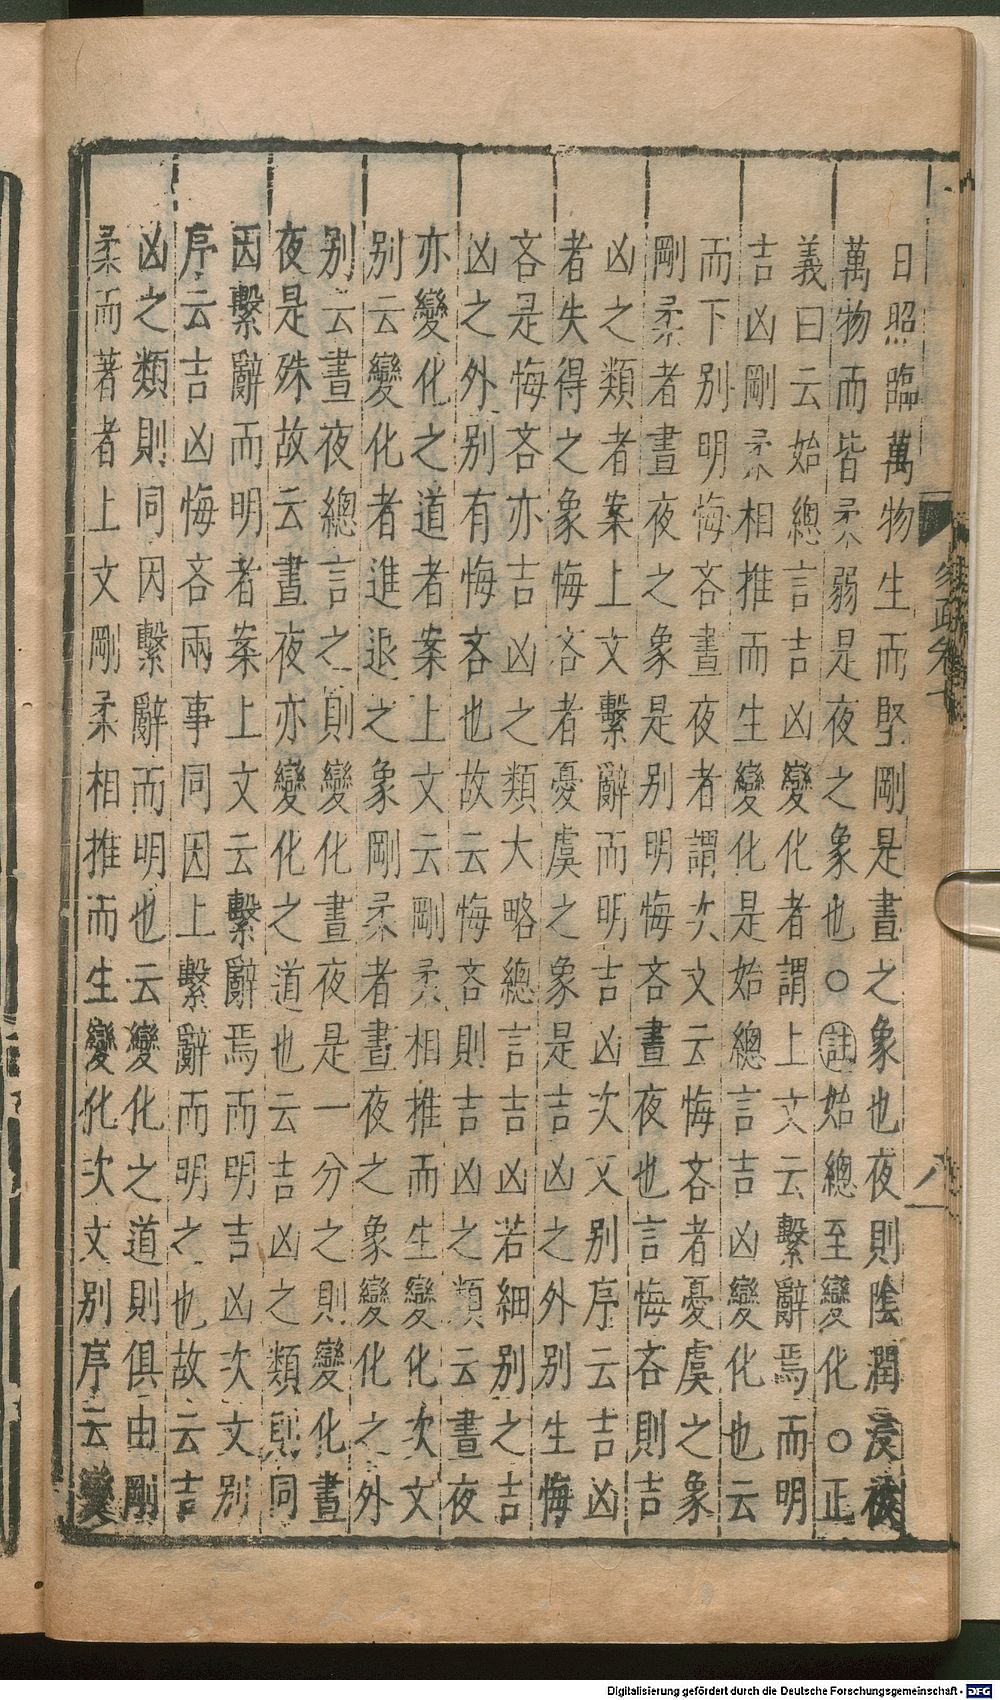 日照臨萬物生而堅剛是晝之象也夜則陰潤浸被
萬物而皆柔弱是夜之象也○註始總至變化○正
義曰云始總言吉凶變化者謂上文云繫辭焉而明
吉凶剛柔相推而生變化是始總言吉凶變化也云
而下別明悔吝晝夜者謂次文云悔吝者憂虞之象
剛柔者晝夜之象是別明悔吝晝夜也言悔吝則吉
凶之類者案上文繫辭而明吉凶次文別序云吉凶
者失得之象悔吝者憂虞之象是吉凶之外別生悔
吝是悔吝亦吉凶之類大略總言吉凶若細別之吉
凶之外別有悔吝也故云悔吝則吉凶之類云晝夜
亦變化之道者案上文云剛柔相推而生變化次文
別云變化者進退之象剛柔者晝夜之象變化之外
別云晝夜總言之則變化晝夜是一分之則變化晝
夜是殊故云晝夜亦變化之道也云吉凶之類則同
因繫辭而明者案上文云繫辭焉而明吉凶次文別
序云吉凶悔吝兩事同因上繫辭而明之也故云吉
凶之類則同因繫辭而明也云變化之道則俱由剛
柔而著者上文剛柔相推而生變化次文別序云變
八
Digitalisierung gefördert durch die Deutsche Forschungsgemeinschaft - DFG